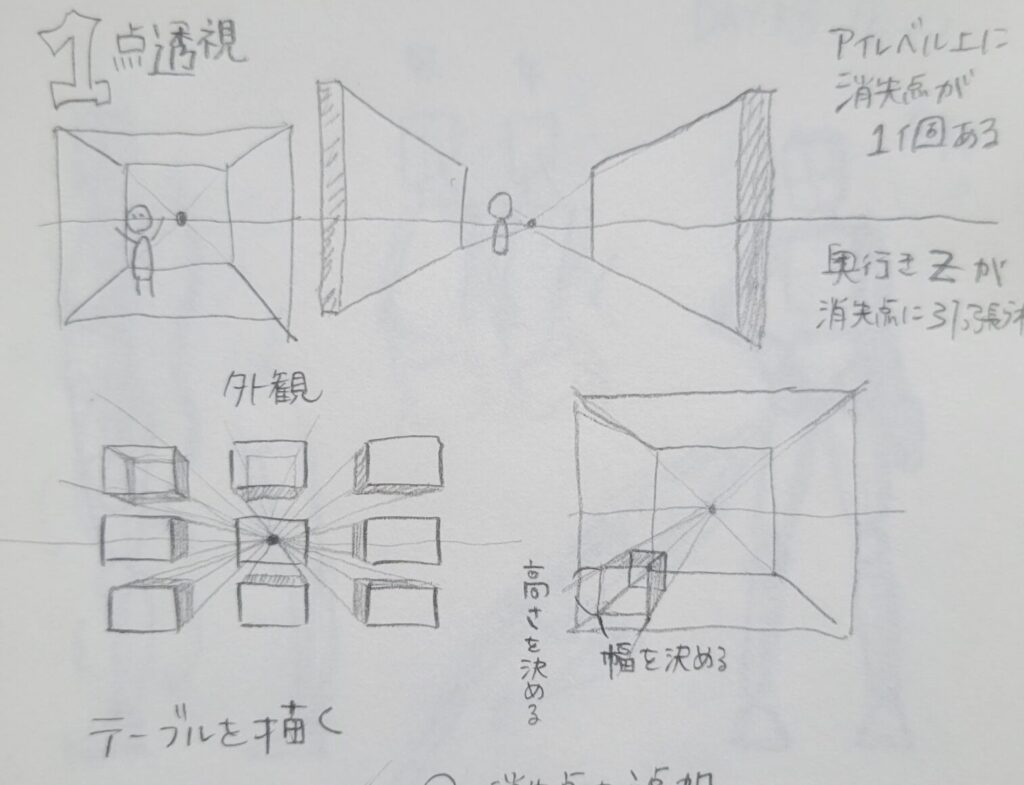 1点透視
アイレベル上に
消失点が
1個ある
奥行きZが
消失点に引っ張られ
外観
高さを決める
幅を決める
テーブルを描く
消失点を追加